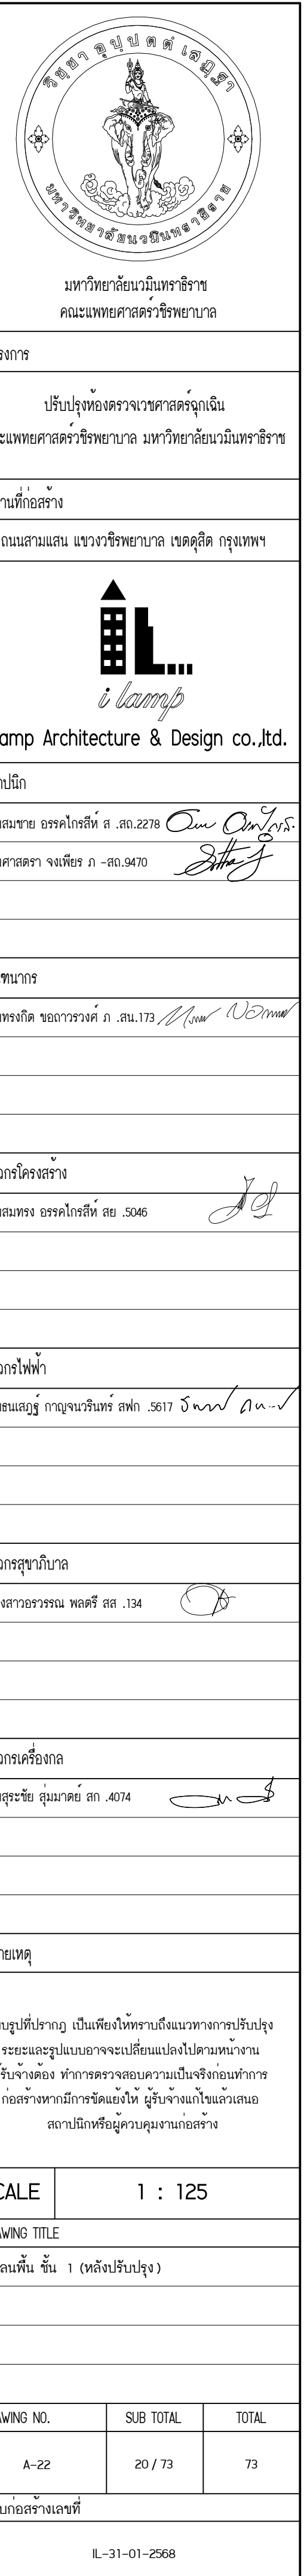 วิชชา อุปปตตํ เสฏฐา
มหาวิทยาลัยนวมินทราธิราช
มหาวิทยาลัยนวมินทราธิราช
คณะแพทยศาสตร์วชิรพยาบาล
รงการ
ปรับปรุงห้องตรวจเวชศาสตร์ฉุกเฉิน
ะแพทยศาสตร์วชิรพยาบาล มหาวิทยาลัยนวมินทราธิราช
านที่ก่อสร้าง
ถนนสามเสน แขวงวชิรพยาบาล เขตดุสิต กรุงเทพฯ
i lamp
amp Architecture & Design co.,ltd.
าปนิก
สมชาย อรรคไกรสีห์ ส .สถ.2278
ศาสตรา จงเพียร ภ -สถ.9470
ฑนากร
ทรงกิต ขอถาวรวงศ์ ภ .สน.173
วกรโครงสร้าง
สมทรง อรรคไกรสีห์ สย .5046
วกรไฟฟ้า
ธนเสฏฐ์ กาญจนวรินทร์ สฟก .5617
วกรสุขาภิบาล
งสาวอรวรรณ พลตรี สส .134
วกรเครื่องกล
สุระชัย สุ่มมาตย์ สก .4074
ายเหตุ
บรูปที่ปรากฎ เป็นเพียงให้ทราบถึงแนวทางการปรับปรุง
ระยะและรูปแบบอาจจะเปลี่ยนแปลงไปตามหน้างาน
รับจ้างต้อง ทำการตรวจสอบความเป็นจริงก่อนทำการ
ก่อสร้างหากมีการขัดแย้งให้ ผู้รับจ้างแก้ไขแล้วเสนอ
สถาปนิกหรือผู้ควบคุมงานก่อสร้าง
CALE 1 : 125
AWING TITLE
ลนพื้น ชั้น 1 (หลังปรับปรุง)
AWING NO. SUB TOTAL TOTAL
A-22 20 / 73 73
บก่อสร้างเลขที่
IL-31-01-2568